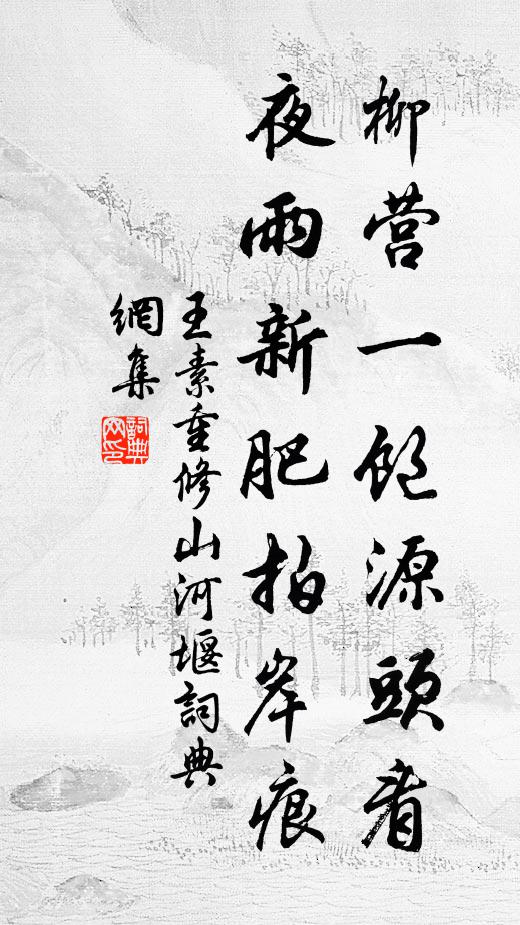 柳营一饱源頭看
夜雨新肥拍岸痕
王素重修山河堰詞典
網集
詞典
网印